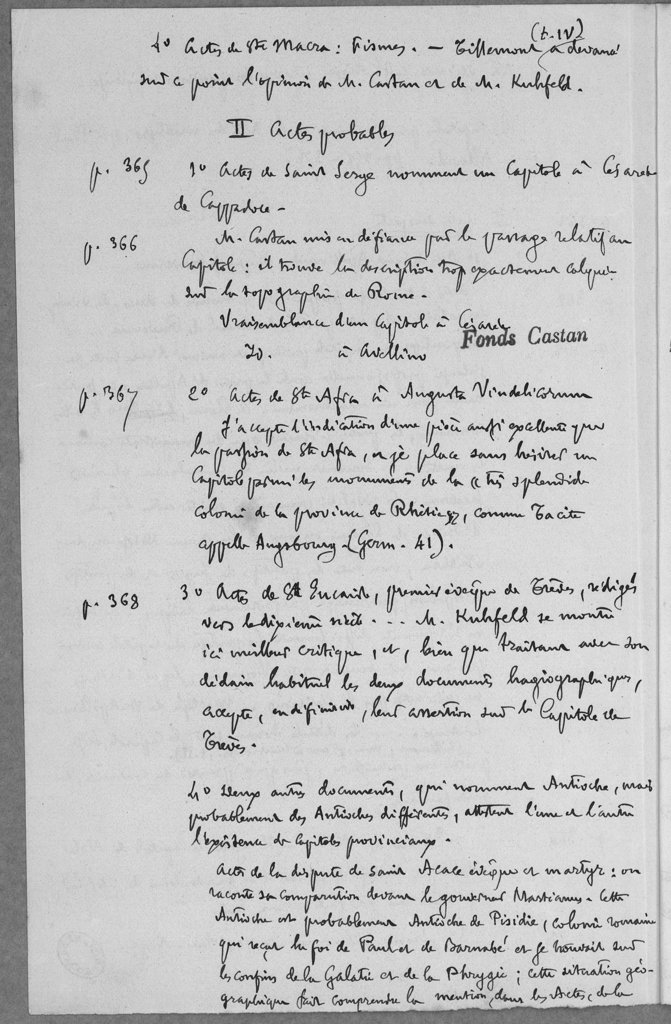 (t. IV)
4° Actes de Ste Macra : Fismes. — Tillemont a devancé
sur ce point l'opinion de M. Castan et de M. Kuhfeld.
II Actes probables
p. 365 1° Actes de Saint Serge nommant un Capitole à Césarée
de Cappadoce -
p. 366 M. Castan mis en défiance par le passage relatif au
Capitole : il trouve la description trop exactement calquée
sur la topographie de Rome -
Vraisemblance d'un Capitole à Césarée
Fonds Castan
Id. à Avellino
p. 367 2° Actes de Ste Afra à Augusta Vindelicorum
J'accepte l'indication d'une pièce aussi excellente que
la passion de Ste Afra, et je place sans hésiter un
Capitole parmi les monuments de la « très splendide
colonie de la province de Rhétie », comme Tacite
appelle Augsbourg - (Germ. 41).
p. 368 3° Actes de St Eucaire, premier évêque de Trèves, rédigés
vers le dixième siècle ... M. Kuhfeld se montre
ici meilleur critique, et, bien que traitant avec son
dédain habituel les deux documents hagiographiques,
accepte, en définitive, leur assertion sur le Capitole de
Trèves.
4° Deux autres documents, qui nomment Antioche, mais
probablement des Antioches différentes, attestent l'une et l'autre
l'existence de Capitoles provinciaux.
Actes de la dispute de saint Acace évêque et martyr : on
raconte sa comparution devant le gouverneur Martianus. Cette
Antioche est probablement Antioche de Pisidie, colonie romaine
qui reçut la foi de Paul et de Barnabé et se trouvait sur
les confins de la Galatie et de la Phrygie ; cette situation géo-
graphique fait comprendre la mention, dans les Actes, de la